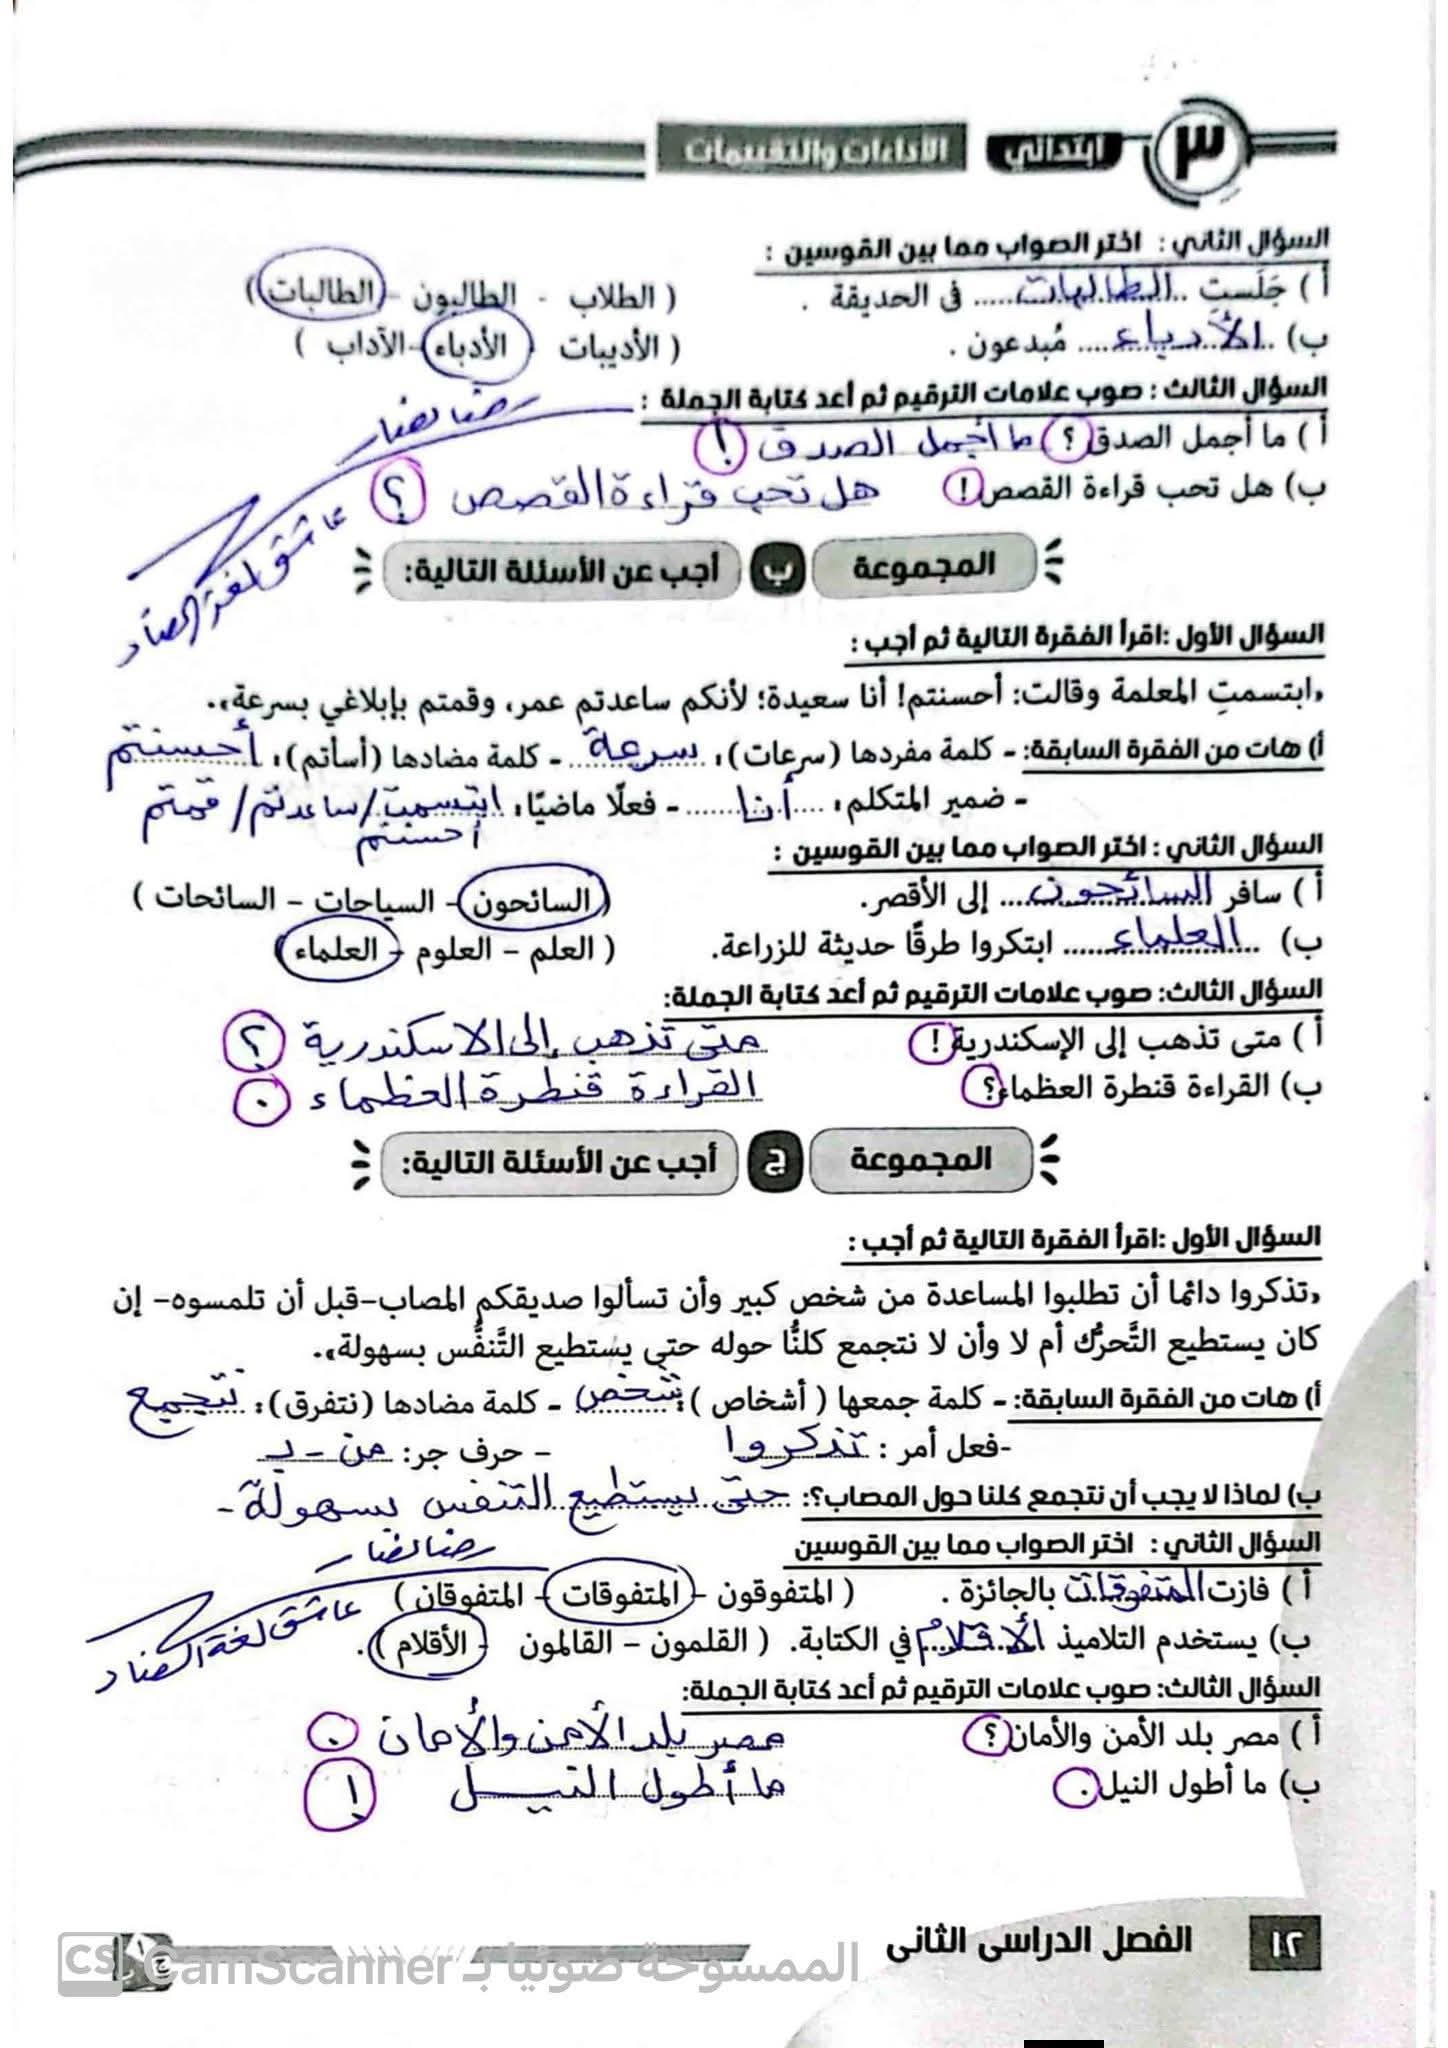 ٣ ابتدائي الأداءات والتقييمات
السؤال الثاني : اختر الصواب مما بين القوسين :
أ ) جَلَستِ ..الطالبات..... في الحديقة . ( الطلاب - الطالبون - الطالبات )
ب) ..الأدباء.... مُبدعون . ( الأديبات - الأدباء - الآداب )
السؤال الثالث : صوب علامات الترقيم ثم أعد كتابة الجملة :
رضا نصار
أ ) ما أجمل الصدق ؟ ما أجمل الصدق !
ب) هل تحب قراءة القصص ! هل تحب قراءة القصص ؟
عاشق لغة الضاد
المجموعة ب أجب عن الأسئلة التالية:
السؤال الأول :اقرأ الفقرة التالية ثم أجب :
«ابتسمتِ المعلمة وقالت: أحسنتم! أنا سعيدة؛ لأنكم ساعدتم عمر، وقمتم بإبلاغي بسرعة».
أ) هات من الفقرة السابقة: - كلمة مفردها (سرعات): سرعة - كلمة مضادها (أسأتم): أحسنتم
- ضمير المتكلم: أنا - فعلًا ماضيًا: ابتسمت / ساعدتم / قمتم
أحسنتم
السؤال الثاني : اختر الصواب مما بين القوسين :
أ ) سافر السائحون .... إلى الأقصر. ( السائحون - السياحات - السائحات )
ب) ..العلماء...... ابتكروا طرقًا حديثة للزراعة. ( العلم - العلوم - العلماء )
السؤال الثالث: صوب علامات الترقيم ثم أعد كتابة الجملة:
أ ) متى تذهب إلى الإسكندرية ! متى تذهب إلى الاسكندرية ؟
ب) القراءة قنطرة العظماء؟ القراءة قنطرة العظماء .
المجموعة ج أجب عن الأسئلة التالية:
السؤال الأول :اقرأ الفقرة التالية ثم أجب :
«تذكروا دائما أن تطلبوا المساعدة من شخص كبير وأن تسألوا صديقكم المصاب-قبل أن تلمسوه- إن
كان يستطيع التَّحرُّك أم لا وأن لا نتجمع كلنُّا حوله حتى يستطيع التَّنفُّس بسهولة».
أ) هات من الفقرة السابقة: - كلمة جمعها ( أشخاص ): شخص - كلمة مضادها (نتفرق): نتجمع
-فعل أمر : تذكروا - حرف جر: من - بـ
ب) لماذا لا يجب أن نتجمع كلنا حول المصاب؟: حتى يستطيع التنفس بسهولة -
السؤال الثاني : اختر الصواب مما بين القوسين
رضا نصار
أ ) فازت المتفوقات بالجائزة . ( المتفوقون - المتفوقات - المتفوقان )
عاشق لغة الضاد
ب) يستخدم التلاميذ الأقلام في الكتابة. ( القلمون - القالمون - الأقلام ) .
السؤال الثالث: صوب علامات الترقيم ثم أعد كتابة الجملة:
أ ) مصر بلد الأمن والأمان ؟ مصر بلد الأمن والأمان .
ب) ما أطول النيل . ما أطول النيل !
١٢ الفصل الدراسى الثانى
الممسوحة ضوئيا بـ CamScanner
CS